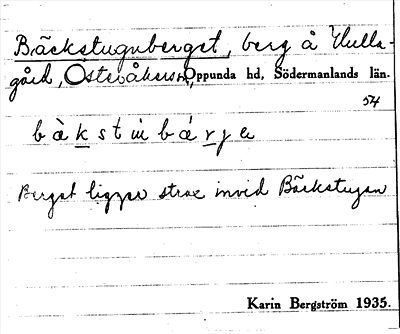 Bäckstuguberget, berg å Hulla-
gård, Österåkers sn, Oppunda hd, Södermanlands län.
54
b à k s t ù b á r j e
Berget ligger strax invid Bäckstugan
Karin Bergström 1935.